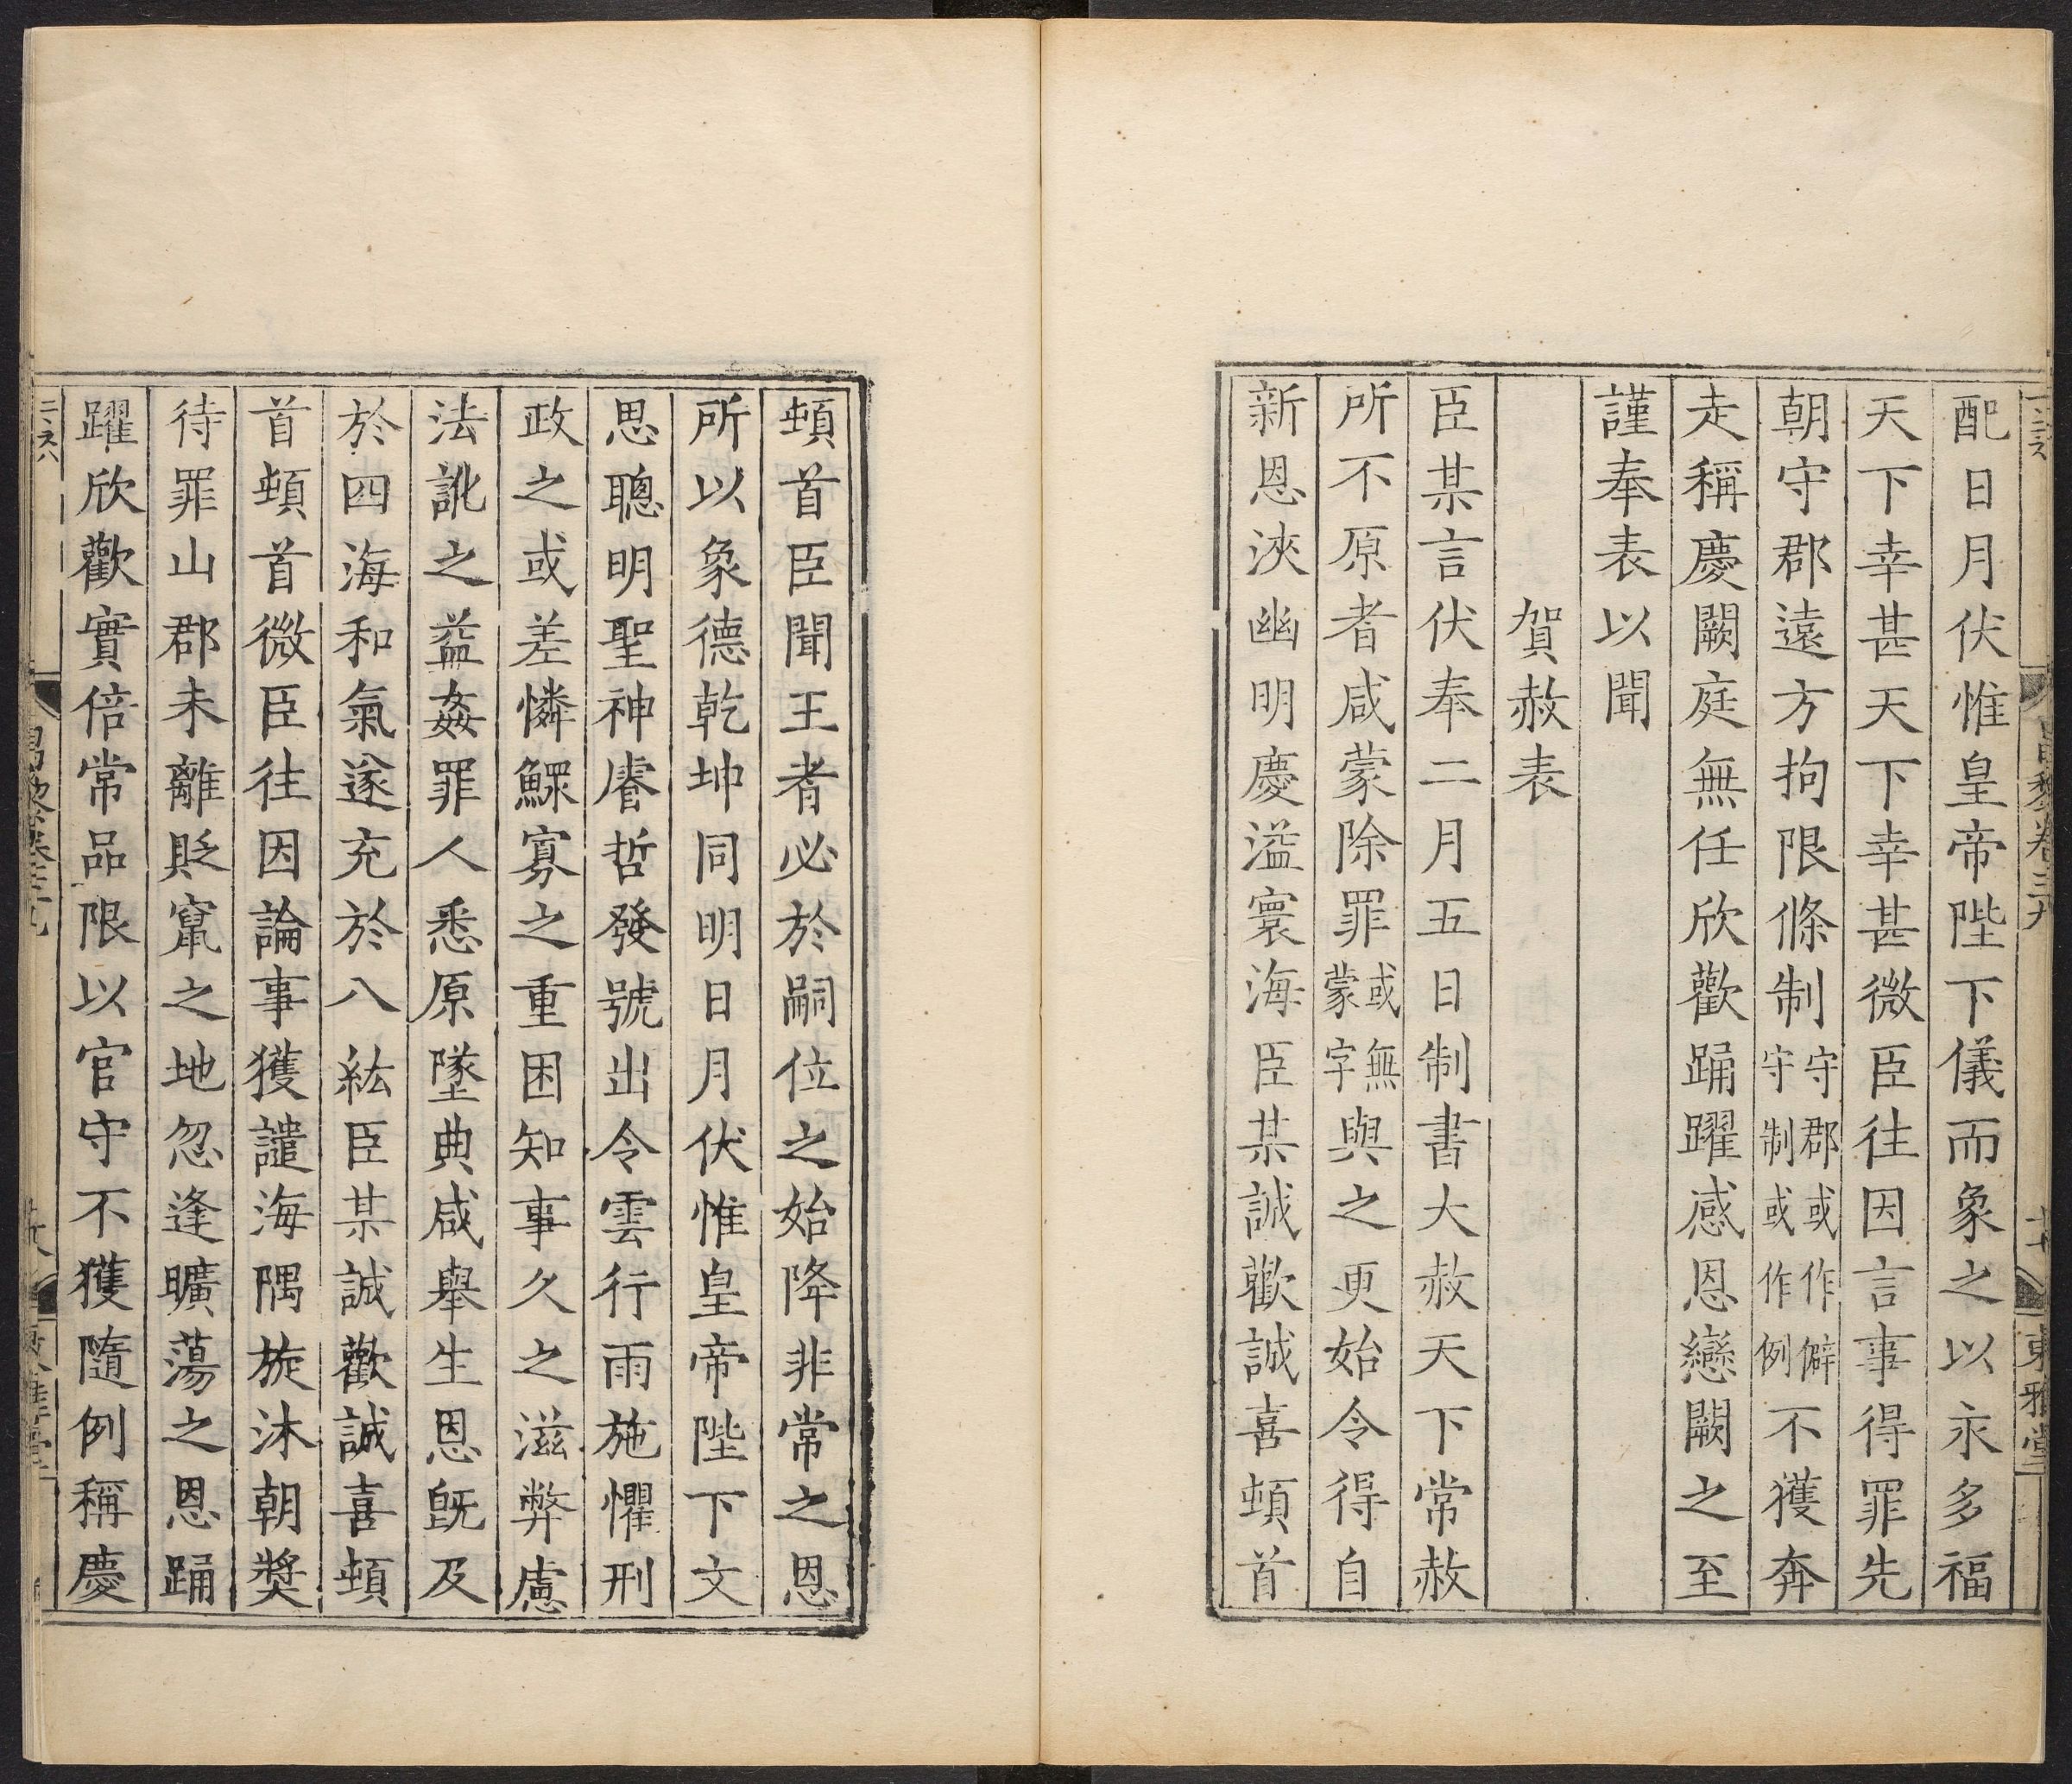 配日月伏惟皇帝陛下儀而象之以永多福
天下幸甚天下幸甚微臣往因言事得罪先
朝守郡遠方拘限條制守郡或作僻守制或作例不獲奔
走稱慶闕庭無任欣歡踊躍感恩戀闕之至
謹奉表以聞
賀赦表
臣某言伏奉二月五日制書大赦天下常赦
所不原者咸蒙除罪或無蒙字與之更始令得自
新恩浹幽明慶溢寰海臣某誠歡誠喜頓首
頓首臣聞王者必於嗣位之始降非常之恩
所以象德乾坤同明日月伏惟皇帝陛下文
思聰明聖神睿哲發號出令雲行雨施懼刑
政之或差憐鰥寡之重困知事久之滋弊慮
法訛之益姦罪人悉原墜典咸舉生恩旣及
於四海和氣遂充於八紘臣某誠歡誠喜頓
首頓首微臣往因論事獲譴海隅旋沐朝獎
待罪山郡未離貶竄之地忽逢曠蕩之恩踊
躍欣歡實倍常品限以官守不獲隨例稱慶
昌黎卷三九
東雅堂